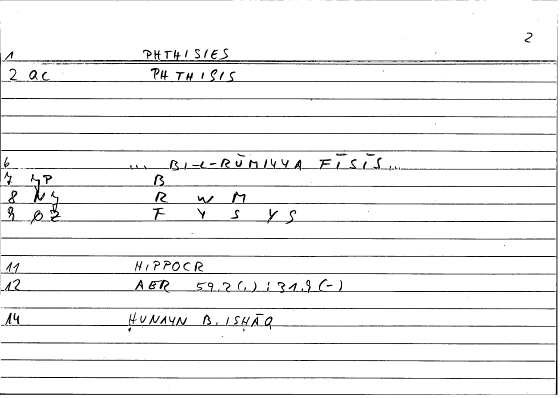 2
1 PHTHISIES
2 ac PHTHISIS
6 ... BI-L-RŪMIYYA FĪSĪS...
7 B
8 R W M
9 F Y S Y S
11 HIPPOCR
12 AER 59.2(.) : 31.9(-)
14 ḤUNAYN B. ISḤĀQ